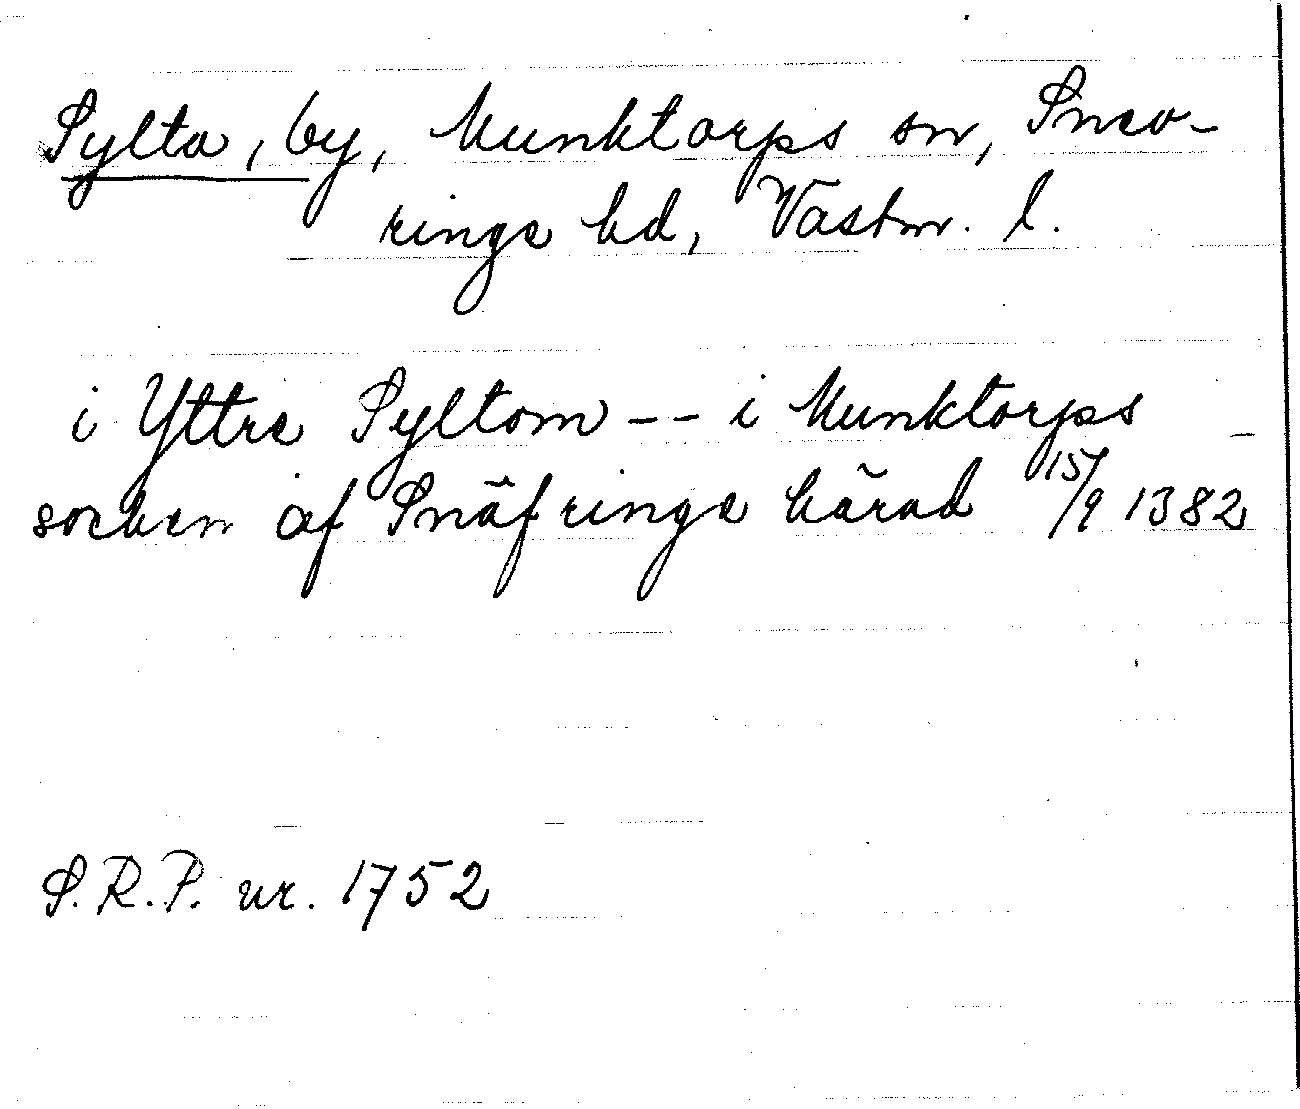 Sylta, by, Munktorps sn, Snev-
ringe hd, Västm. l.
i Yttre Syltom -- i Munktorps
socken af Snäfringe härad 15/9 1382
S.R.P. nr. 1752